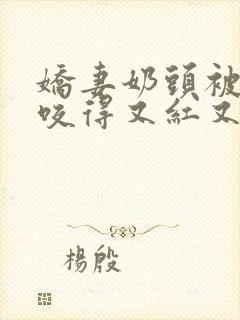 嬌妻奶頭被
咬得又紅又
楊殷